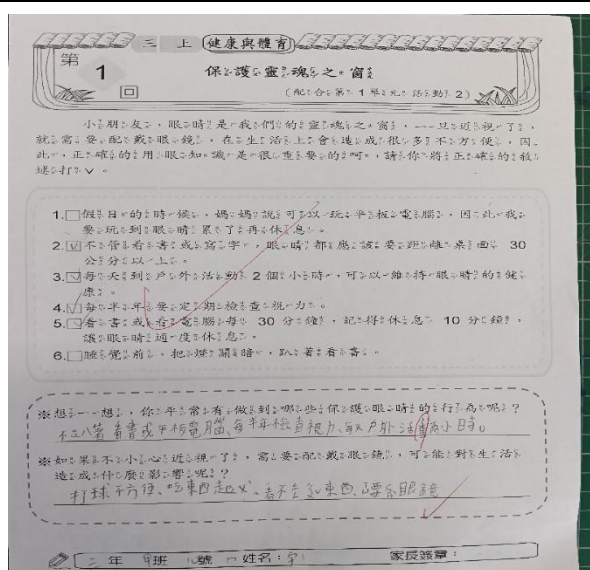 三 上 健康與體育
第 1 回
保護靈魂之窗
(配合第 1 單元活動 2)
小朋友,眼睛是我們的靈魂之窗,一旦近視了,
就需要配戴眼鏡,在生活上會造成很多不方便,因
此,正確的用眼知識是很重要的呵,請你將正確的敘
述打 ∨ 。
1. □假日的時候,媽媽說可以玩平板電腦,因此我
要玩到眼睛累了再休息。
2. ☑不管看書或寫字,眼睛都應該要距離桌面 30
公分以上。
3. ☑每天到戶外活動 2 個小時,可以維持眼睛的健
康。
4. ☑每半年要定期檢查視力。
5. ☑看書或看電腦每 30 分鐘,記得休息 10 分鐘,
讓眼睛適度休息。
6. □睡覺前,把燈關暗,趴著看書。
※想一想,你平常有做到哪些保護眼睛的行為呢?
看書或平板電腦、每半年檢查視力、每天戶外活動 小時。
※如果不小心近視了,需要配戴眼鏡,可能對生活
造成什麼影響呢?
打球不方便、吃東西起 、看不 東西、 眼鏡
年 班 號 姓名: 家長簽章: